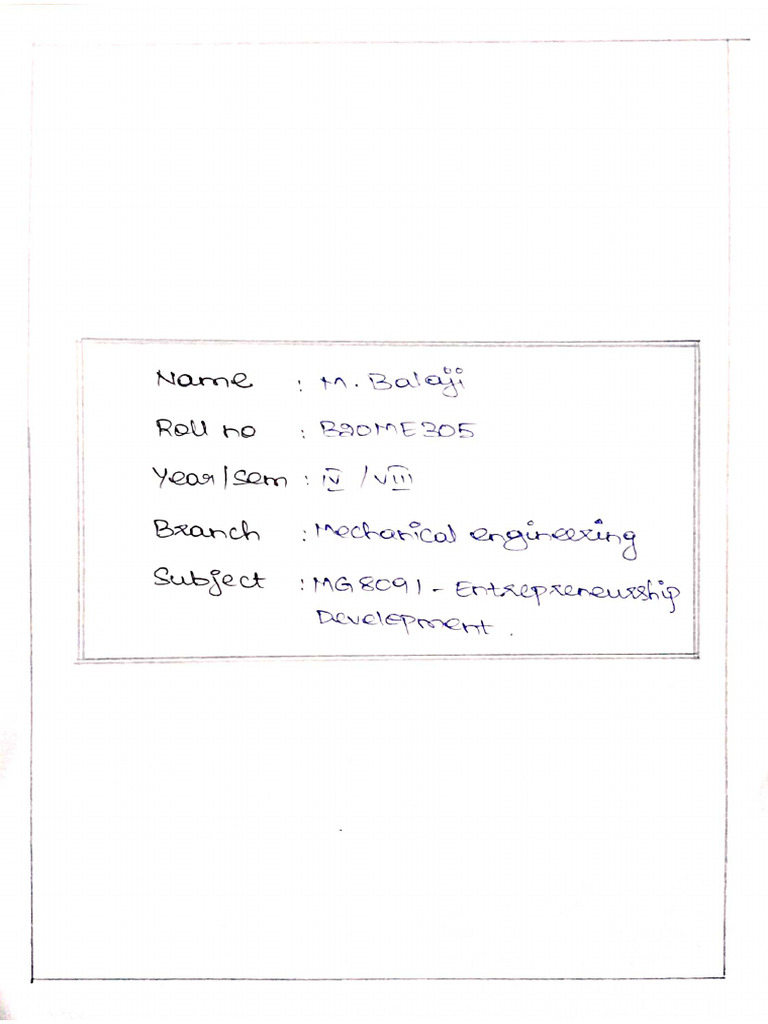 Name : M. Balaji
Roll no : B20ME305
Year/Sem : IV / VIII
Branch : Mechanical engineering
Subject : MG8091 - Entrepreneurship
Development.